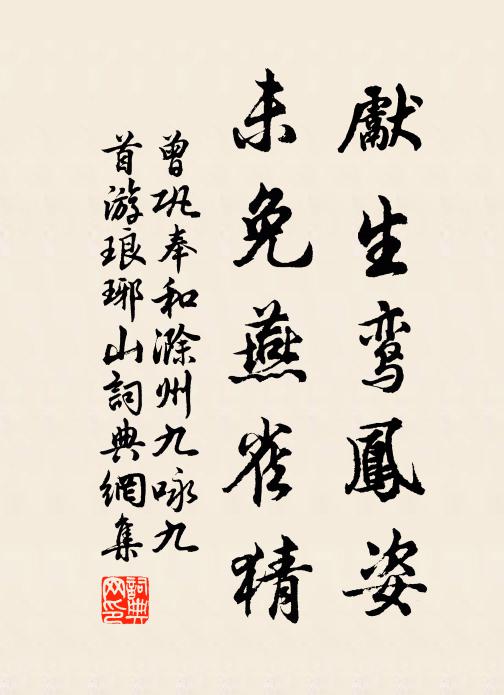 獻生鸞鳳姿
未免燕雀猜
曾巩奉和滁州九咏九
首游琅琊山詞典網集
詞典网印